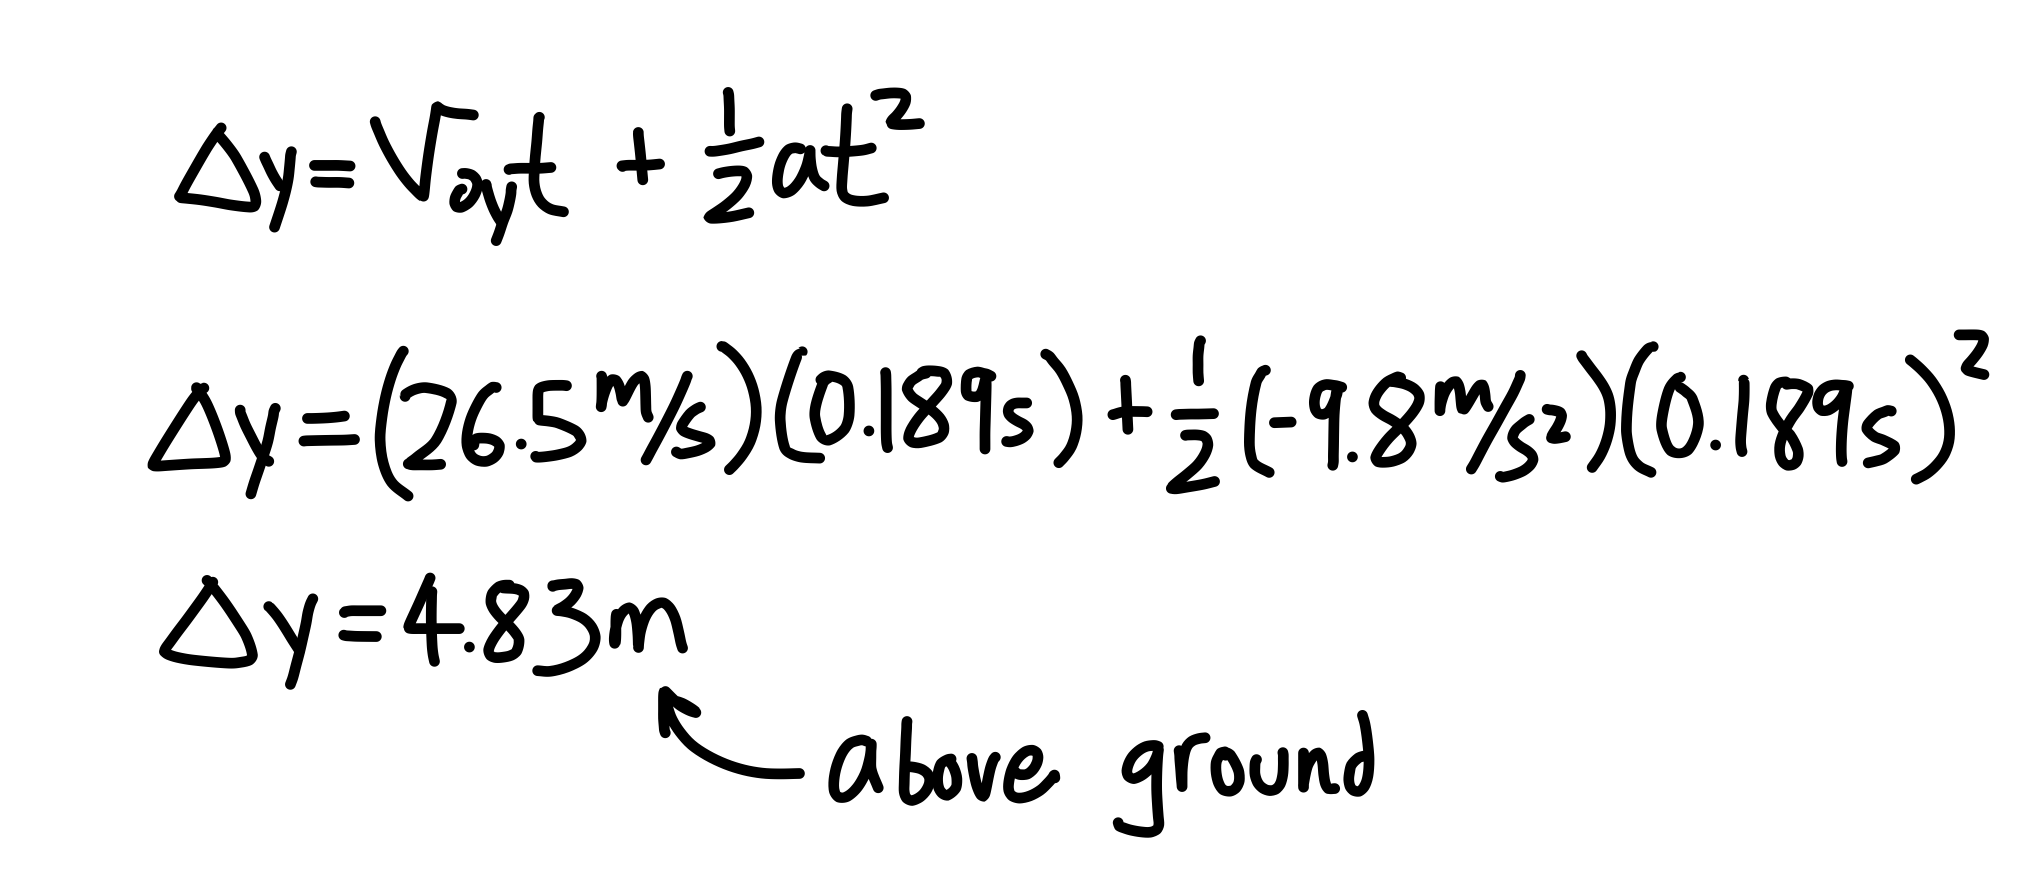 Δy = V₀yt + ½at²
Δy = (26.5 m/s)(0.189s) + ½(-9.8 m/s²)(0.189s)²
Δy = 4.83m
above ground